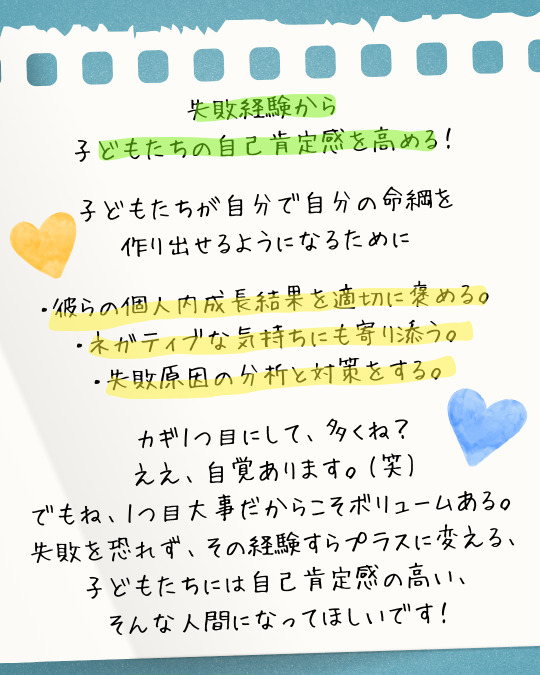 失敗経験から
子どもたちの自己肯定感を高める！
子どもたちが自分で自分の命綱を
作り出せるようになるために
・彼らの個人内成長結果を適切に褒める。
・ネガティブな気持ちにも寄り添う。
・失敗原因の分析と対策をする。
カギ1つ目にして、多くね？
ええ、自覚あります。(笑)
でもね、1つ目大事だからこそボリュームある。
失敗を恐れず、その経験すらプラスに変える、
子どもたちには自己肯定感の高い、
そんな人間になってほしいです！